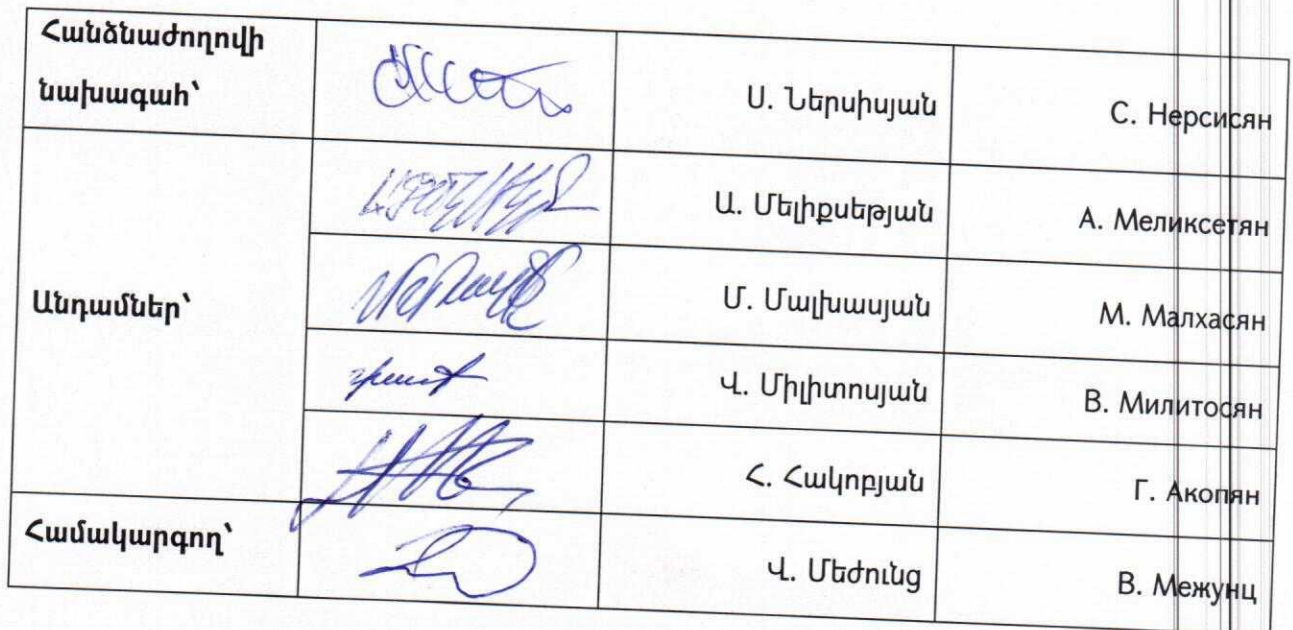 Հանձնաժողովի
նախագահ՝
Ս. Ներսիսյան
С. Нерсисян
Անդամներ՝
Ա. Մելիքսեթյան
А. Меликсетян
Մ. Մալխասյան
М. Малхасян
Վ. Միլիտոսյան
В. Милитосян
Հ. Հակոբյան
Г. Акопян
Համակարգող՝
Վ. Մեժունց
В. Межунц